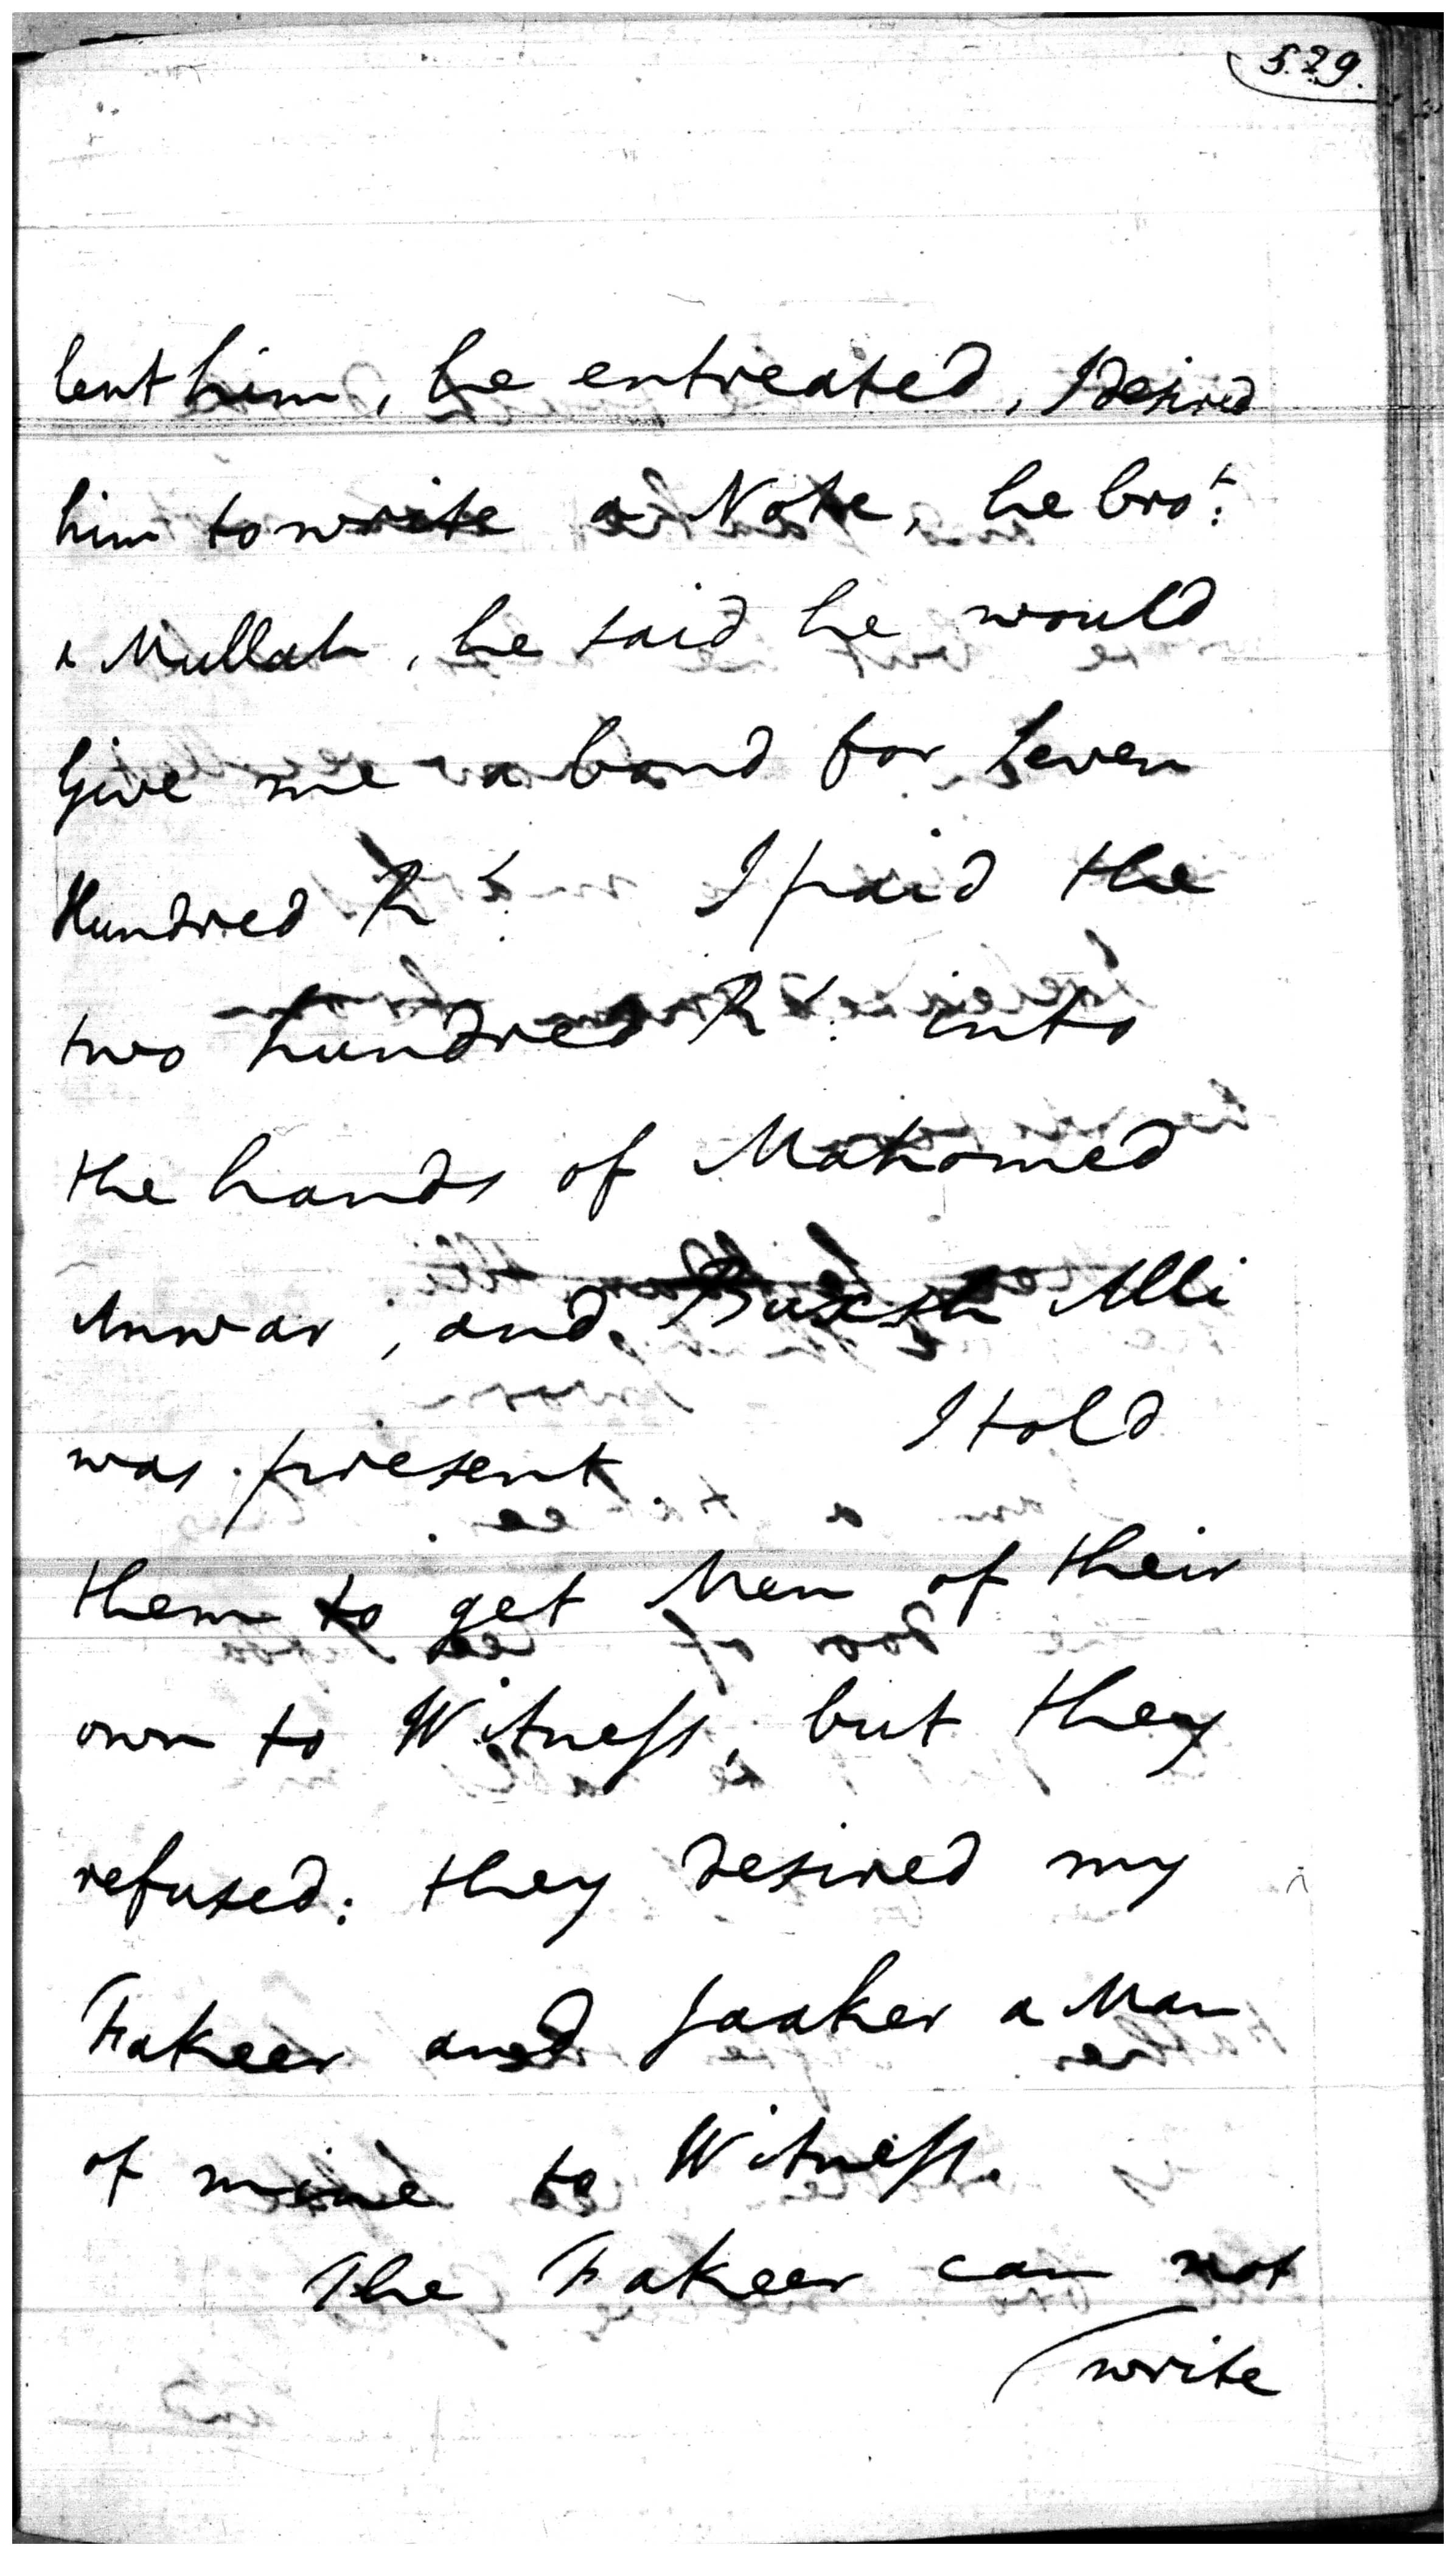 529.
lent him, he entreated, I desired
him to write a Note, he bro.t
a Mullah, he said he would
Give me a bond for Seven
Hundred R.s I paid the
two hundred R.s into
the hands of Mahomed
Anwar, and Buxsh Alli
was present I told
them to get Men of their
own to Witness, but they
refused: they desired my
Fakeer and Jaaker a Man
of mine to Witness.
The Fakeer can not
write